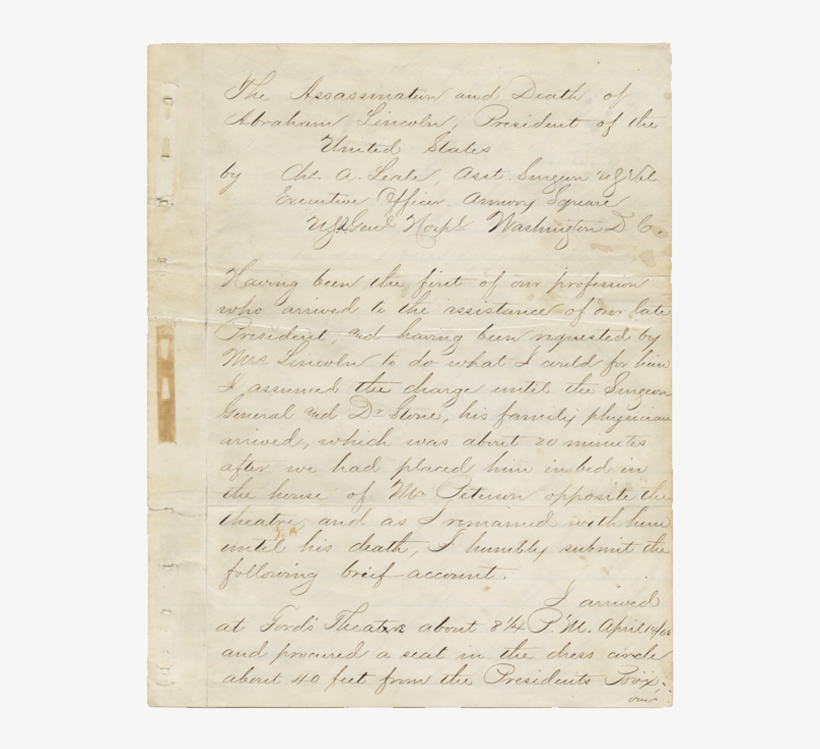 The Assassination and Death of
Abraham Lincoln, President of the
United States
by Chs. A. Leale, Asst. Surgeon U.S. Vol.
Executive Officer Armory Square
U.S. Genl Hospl Washington D. C.
Having been the first of our profession
who arrived to the assistance of our late
President, and having been requested by
Mrs Lincoln to do what I could for him
I assumed the charge until the Surgeon
General and Dr Stone, his family physician
arrived, which was about 20 minutes
after we had placed him in bed in
the house of Mr Peterson opposite the
theatre, and as I remained with him
until his death, I humbly submit the
following brief account.
I arrived
at Fords Theatre about 8¼ P.M. April 14/65
and procured a seat in the dress circle
about 40 feet from the Presidents Box;
over